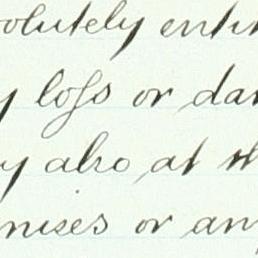 olutely enti
y loſs or da
y also at th
mises or any